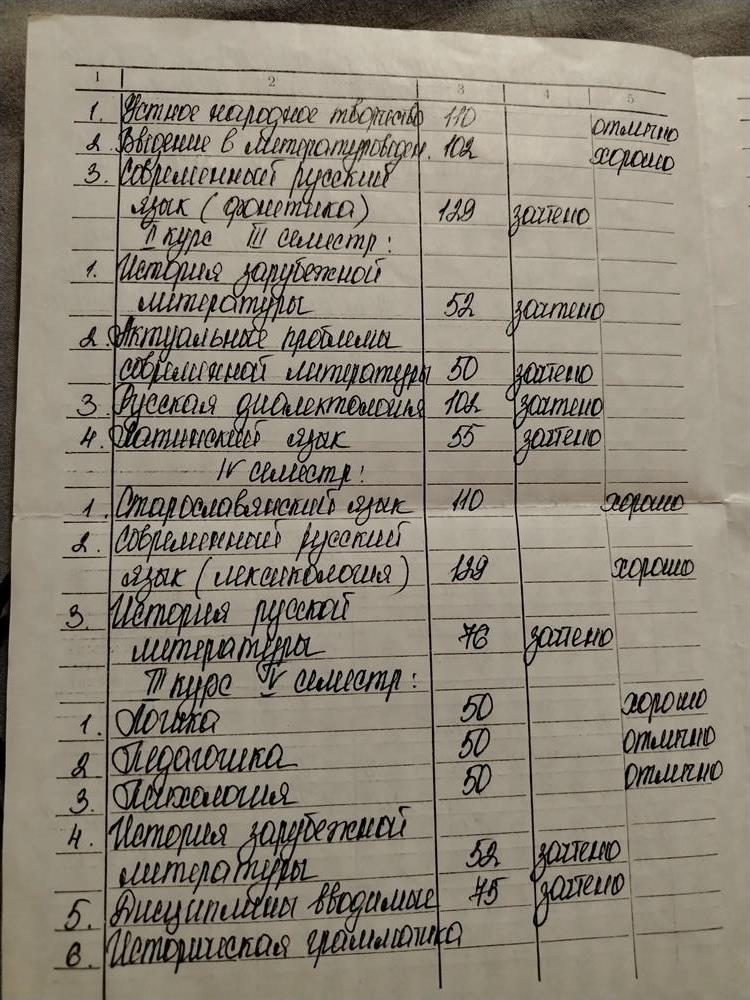 1 2 3 4 5
1. Устное народное творчество 110 отлично
2. Введение в литературоведен. 102 хорошо
3. Современный русский
язык (фонетика) 129 зачтено
II курс III семестр:
1. История зарубежной
литературы 52 зачтено
2. Актуальные проблемы
современной литературы 50 зачтено
3. Русская диалектология 102 зачтено
4. Латинский язык 55 зачтено
IV семестр:
1. Старославянский язык 110 хорошо
2. Современный русский
язык (лексикология) 129 хорошо
3. История русской
литературы 76 зачтено
III курс IV семестр:
1. Логика 50 хорошо
2 Педагогика 50 отлично
3. Психология 50 отлично
4. История зарубежной
литературы 52 зачтено
5. Дисциплины вводимые 75 зачтено
6. Историческая грамматика